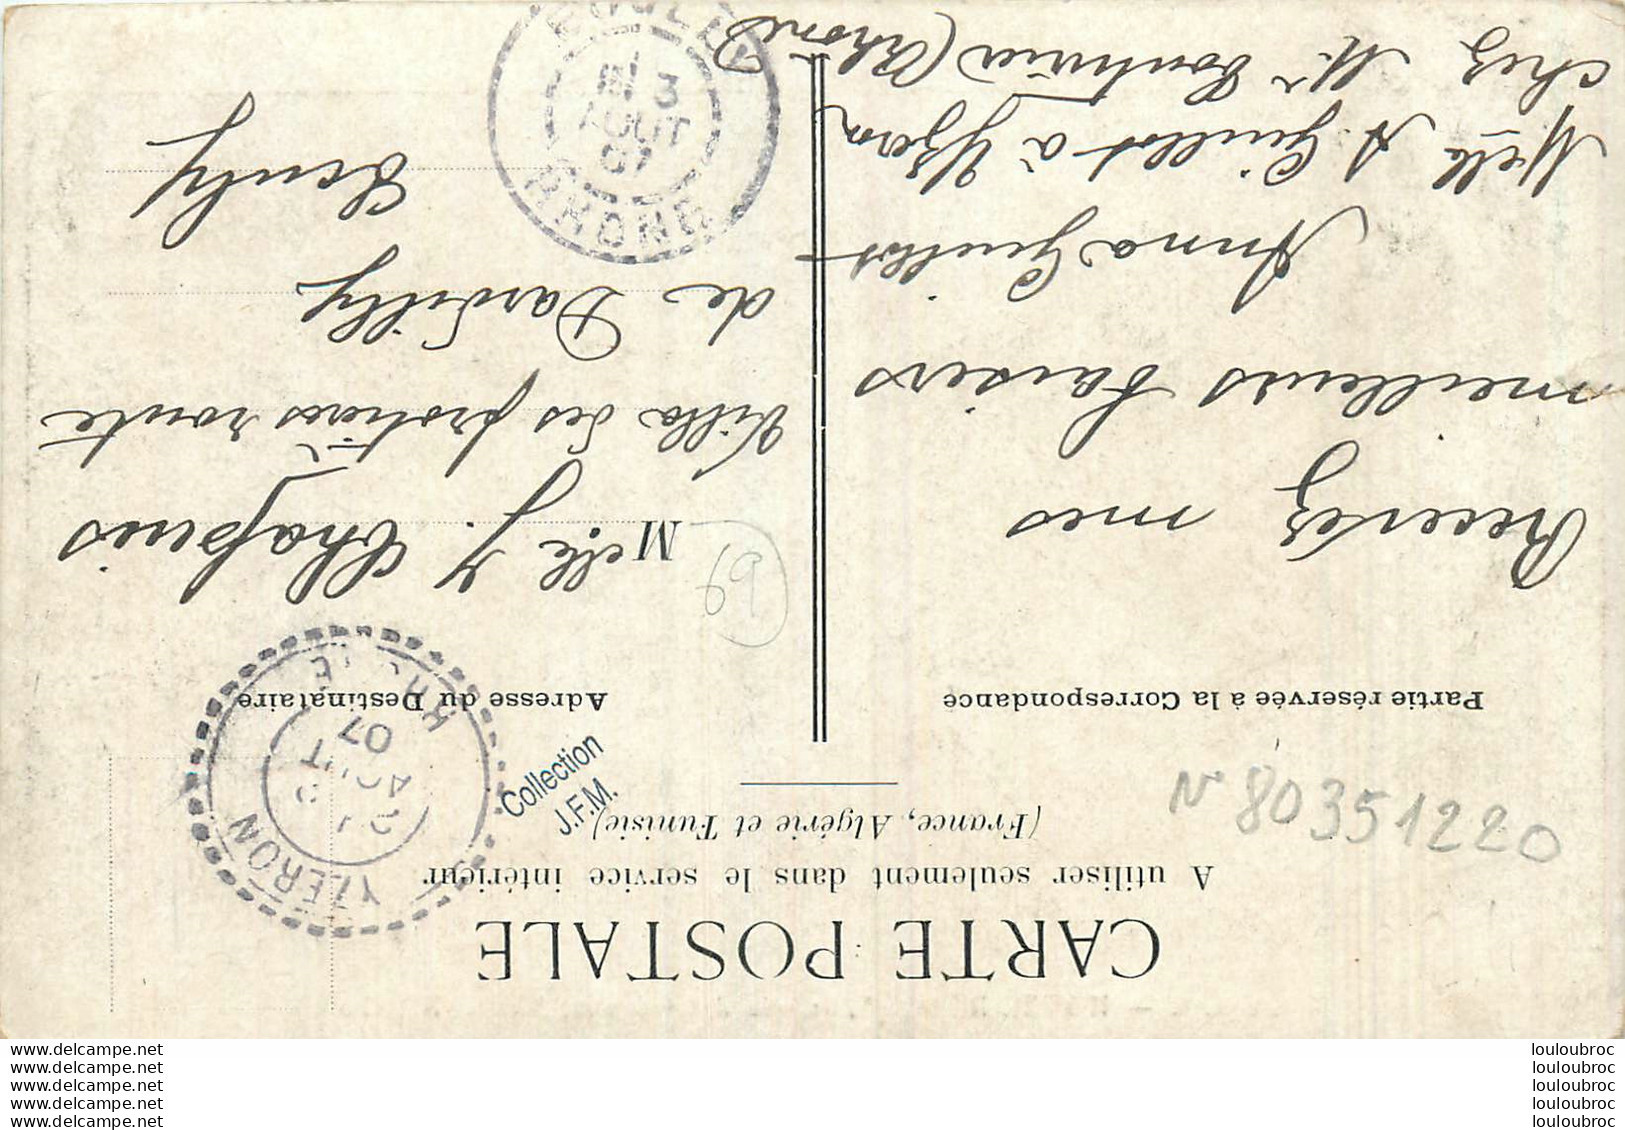 CARTE POSTALE
A utiliser seulement dans le service intérieur
(France, Algérie et Tunisie)
Partie réservée à la Correspondance
Adresse du Destinataire
Recevez mes
meilleurs baisers
Anna Guillot
Melle A Guillot à Yzeron
chez Mr (Rhône)
Melle J.
Villa des route
de Dardilly
Ecully
YZERON
AOUT
07
3
AOUT
07
RHONE
Collection
J.F.M.
N 80351220
www.delcampe.net
www.delcampe.net
www.delcampe.net
www.delcampe.net
www.delcampe.net
louloubroc
louloubroc
louloubroc
louloubroc
louloubroc